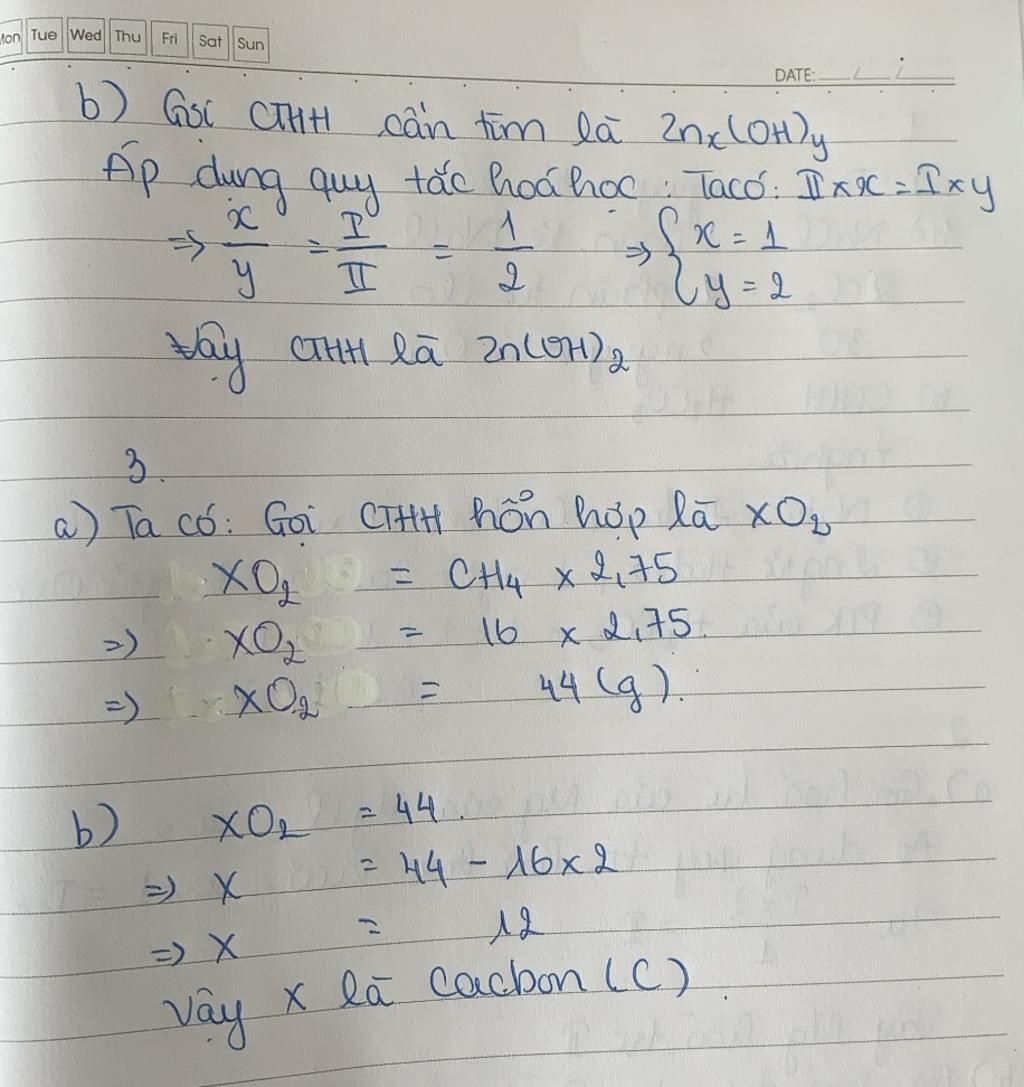 Mon Tue Wed Thu Fri Sat Sun
DATE: / /
b) Gọi CTHH cần tìm là Znx(OH)y
Áp dụng quy tắc hoá học: Ta có: II × x = I × y
=> x/y = I/II = 1/2 => { x = 1
{ y = 2
Vậy CTHH là Zn(OH)2
3.
a) Ta có: Gọi CTHH hổn hợp là XO2
XO2 = CH4 × 2,75
=) XO2 = 16 × 2,75.
=) XO2 = 44 (g).
b) XO2 = 44.
=) X = 44 - 16×2
=) X = 12
Vậy X là Cacbon (C).